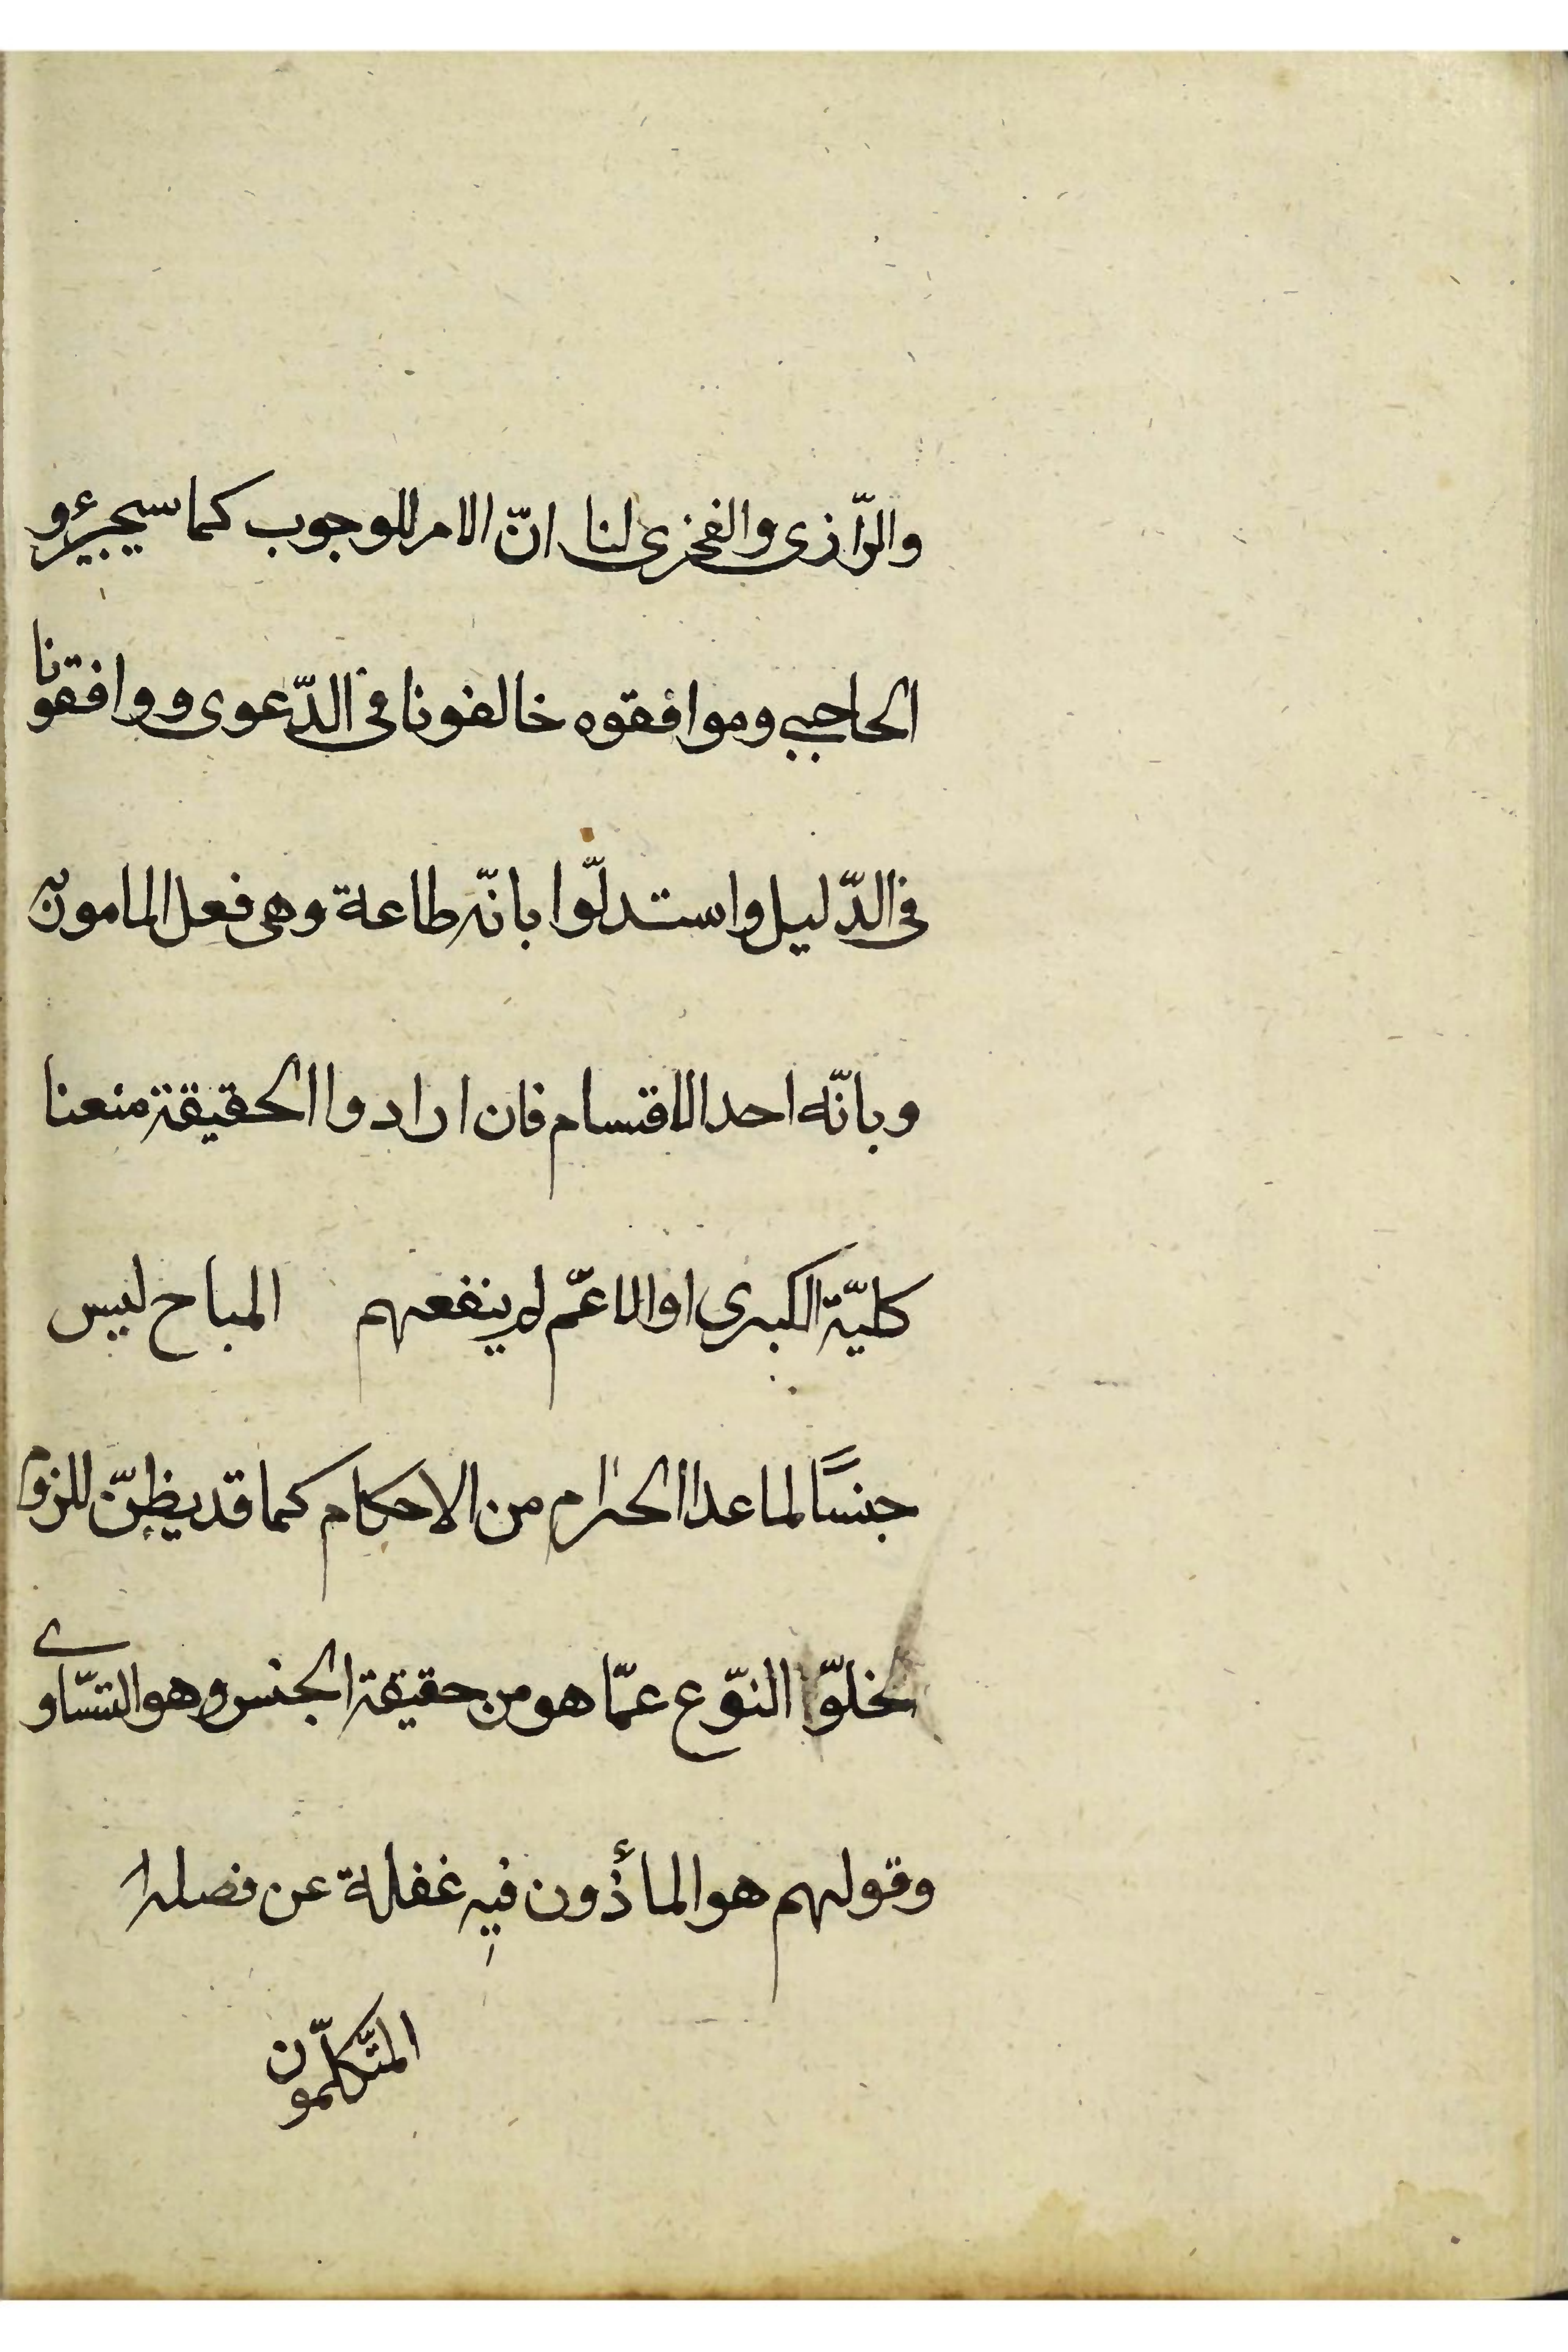 والرّازى والفخرى لنا انّ الامر للوجوب كما سيجيئ و
الحاجبى وموافقوه خالفونا فى الدّعوى ووافقونا
فى الدّليل واستدلّوا بانّه طاعة وهى فعل المامور به
وبانّه احد الاقسام فان ارادوا الحقيقة منعنا
كليّة الكبرى او الاعمّ لم ينفعهم المباح ليس
جنسًا لما عدا الحرام من الاحكام كما قد يظنّ للزوم
خلوّ النوّع عمّا هو من حقيقة الجنس وهو التسّاوى
وقولهم هو المأذون فيه غفلة عن فصله
المتكلّمون